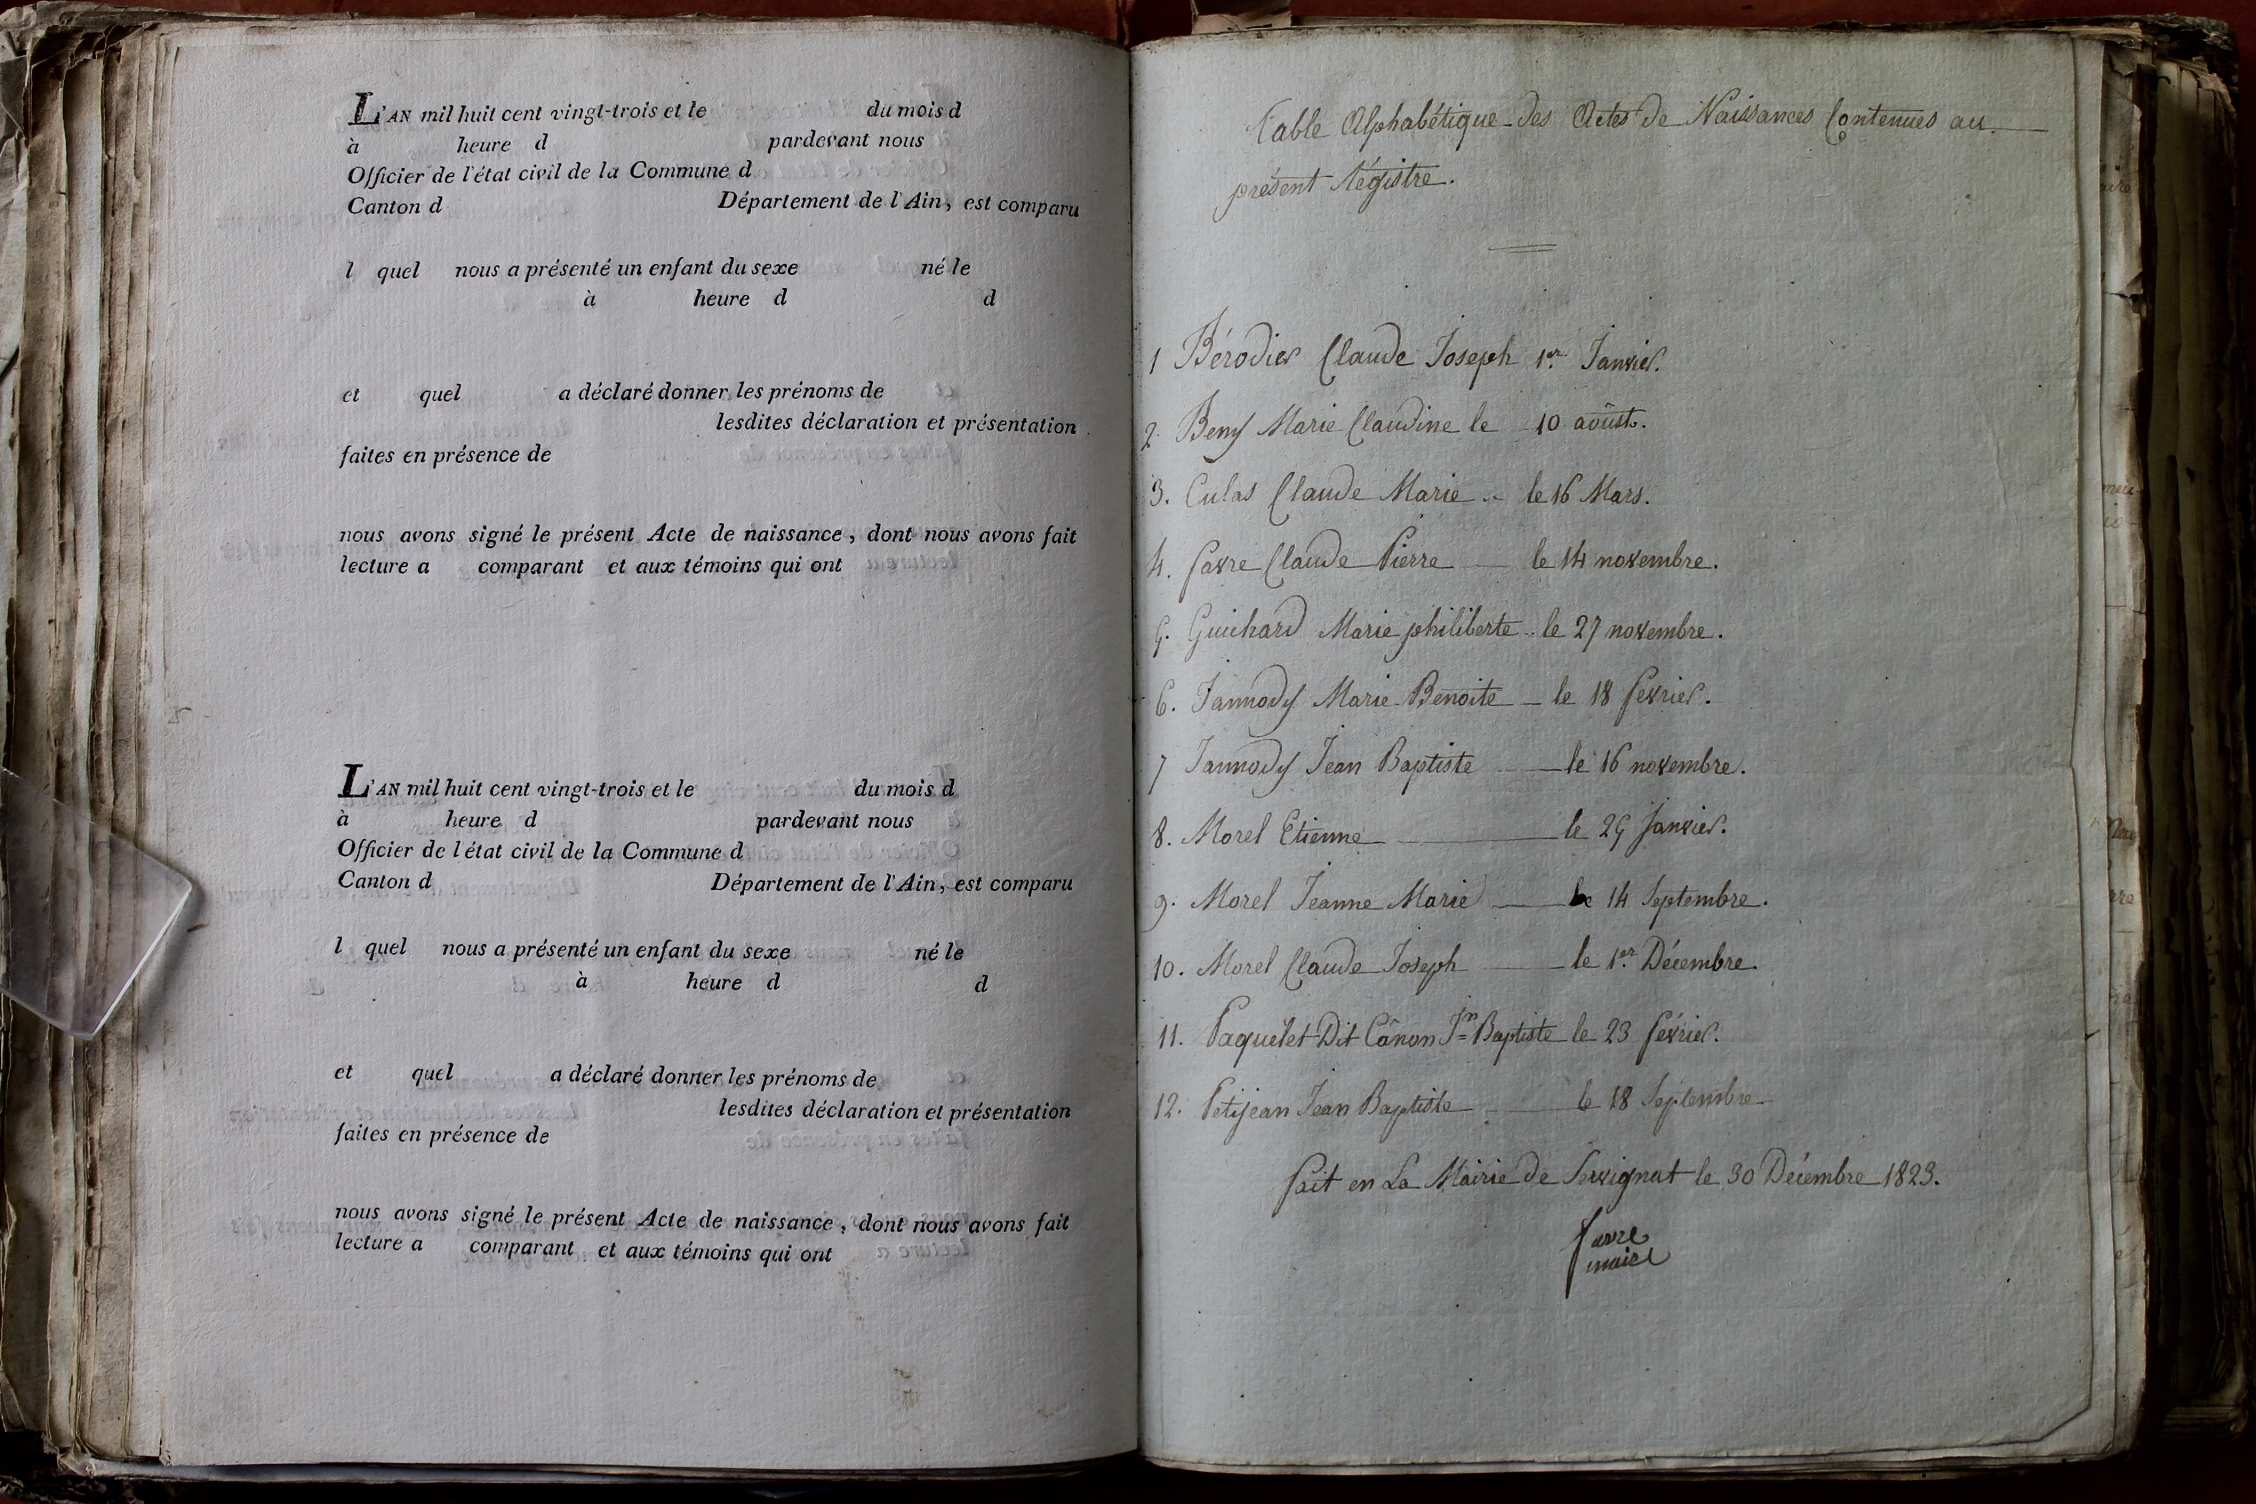 L'AN mil huit cent vingt-trois et le du mois d
à heure d pardevant nous
Officier de l'état civil de la Commune d
Canton d Département de l'Ain, est comparu
l quel nous a présenté un enfant du sexe né le
à heure d d
et quel a déclaré donner les prénoms de
lesdites déclaration et présentation
faites en présence de
nous avons signé le présent Acte de naissance, dont nous avons fait
lecture a comparant et aux témoins qui ont
L'AN mil huit cent vingt-trois et le du mois d
à heure d pardevant nous
Officier de l'état civil de la Commune d
Canton d Département de l'Ain, est comparu
l quel nous a présenté un enfant du sexe né le
à heure d d
et quel a déclaré donner les prénoms de
lesdites déclaration et présentation
faites en présence de
nous avons signé le présent Acte de naissance, dont nous avons fait
lecture a comparant et aux témoins qui ont
Table Alphabétique des Actes de Naissances Contenues au
présent Régistre.
1 Bérodier Claude Joseph 1er. Janvier.
2. Beny Marie Claudine le 10 aoûst.
3. Culas Claude Marie le 16 Mars.
4. favre Claude Pierre le 14 novembre.
5. Guichard Marie philiberte le 27 novembre.
6. Jannody Marie Benoite le 18 fevrier.
7 Jannody Jean Baptiste le 16 novembre.
8. Morel Etienne le 25 Janvier.
9. Morel Jeanne Marie le 14 Septembre.
10. Morel Claude Joseph le 1er Décembre.
11. Paquelet Dit Cânon Jn Baptiste le 23 février.
12. Petijean Jean Baptiste le 18 Septembre
fait en La Mairie de Servignat le 30 Décembre 1823.
favre
maire